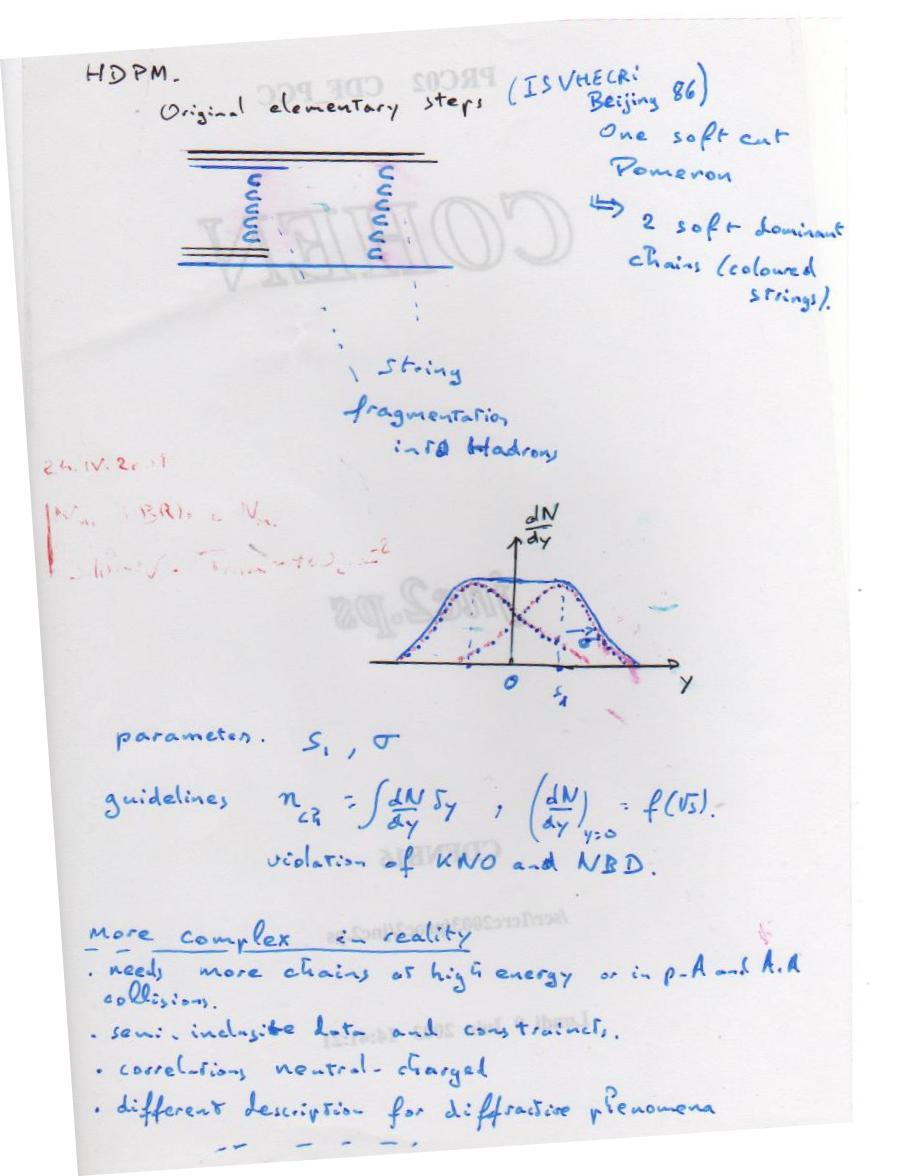 HDPM.
Original elementary steps (ISVHECRI
Beijing 86)
One soft cut
Pomeron
⇔
2 soft dominant
chains (coloured
strings).
String
fragmentation
into Hadrons
24.IV.2
dN
dy
0
s1
σ
y
parameters. S1, σ
guidelines nch = ∫ dN/dy δy , (dN/dy)y=0 = f(√s).
violation of KNO and NBD.
More complex in reality
. needs more chains at high energy or in p-A and A.A
collisions.
. semi-inclusite data and constraincts.
. correlations neutral-charged
. different description for diffractive phenomena
PRC02 CDF PCC
COHEN
inc2.ps